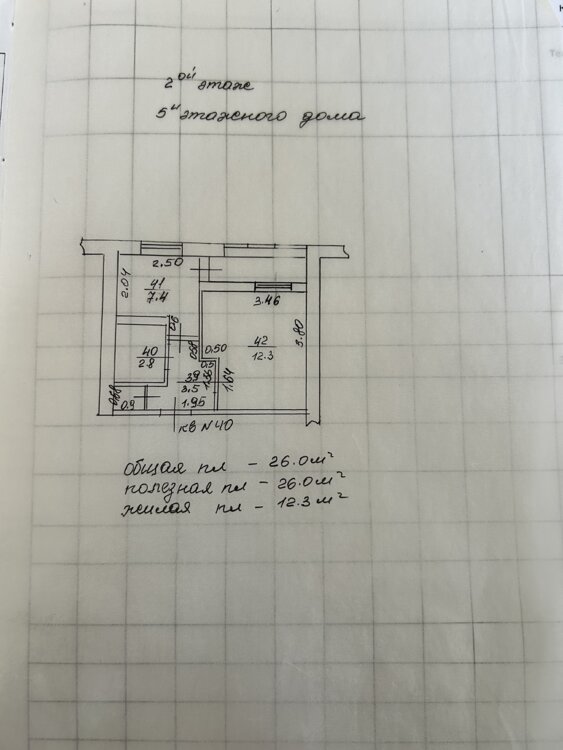 2ой этаж
5и этажного дома
2.50
2.04
41
7.4
3.46
3.80
0.50
42
12.3
40
2.8
39
3.5
1.64
0.9
1.95
кв N40
общая пл - 26.0 м²
полезная пл - 26.0 м²
жилая пл - 12.3 м²